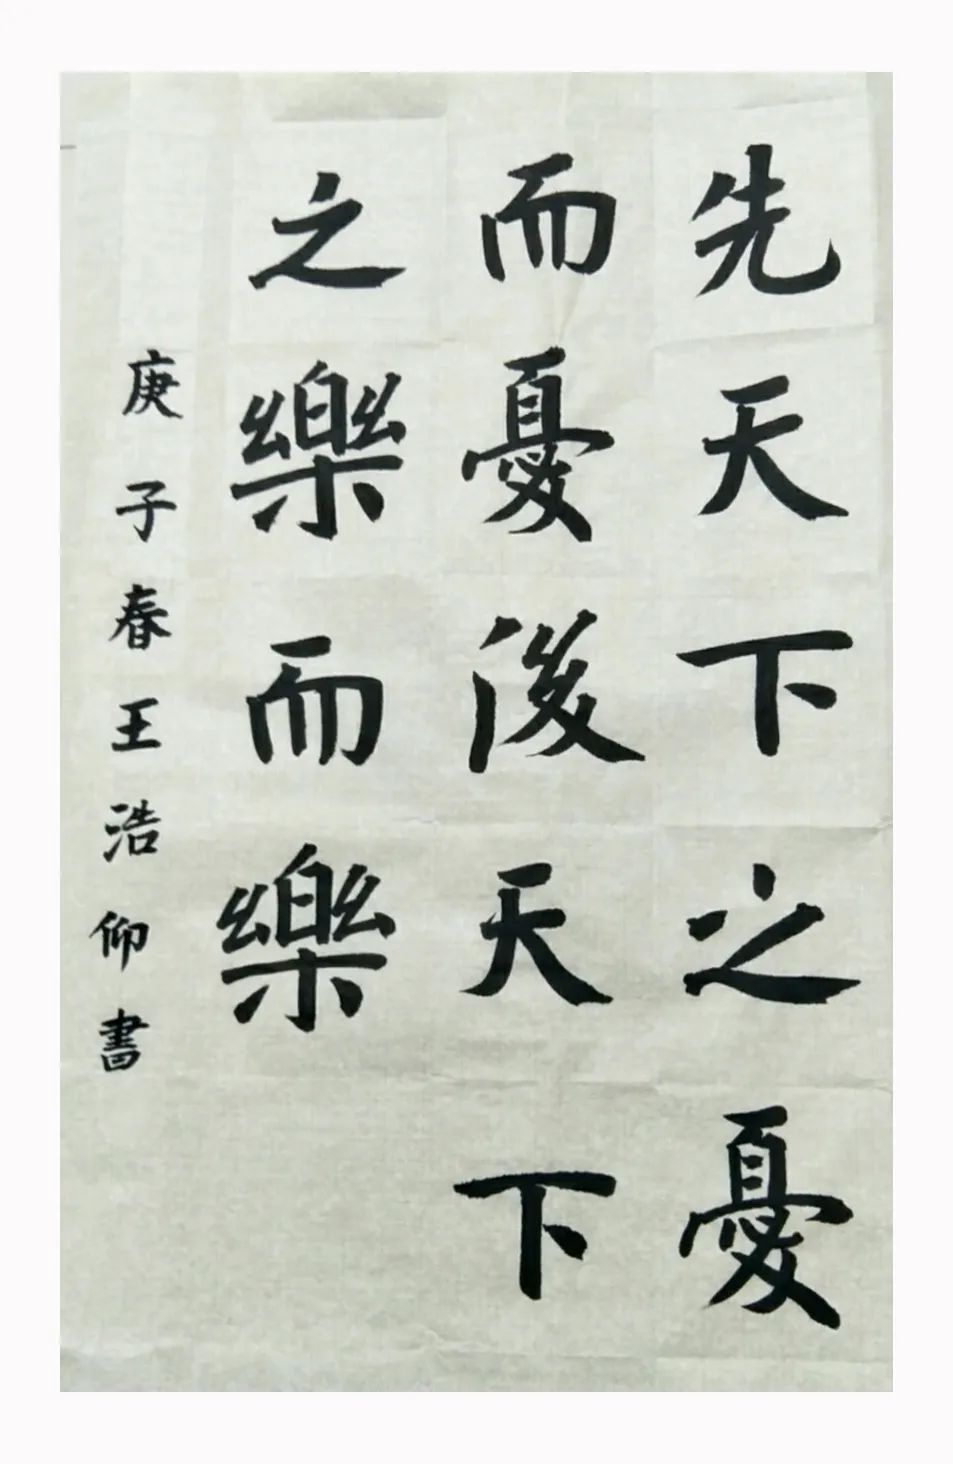 先天下之憂
而憂後天下
之樂而樂
庚子春王浩仰書